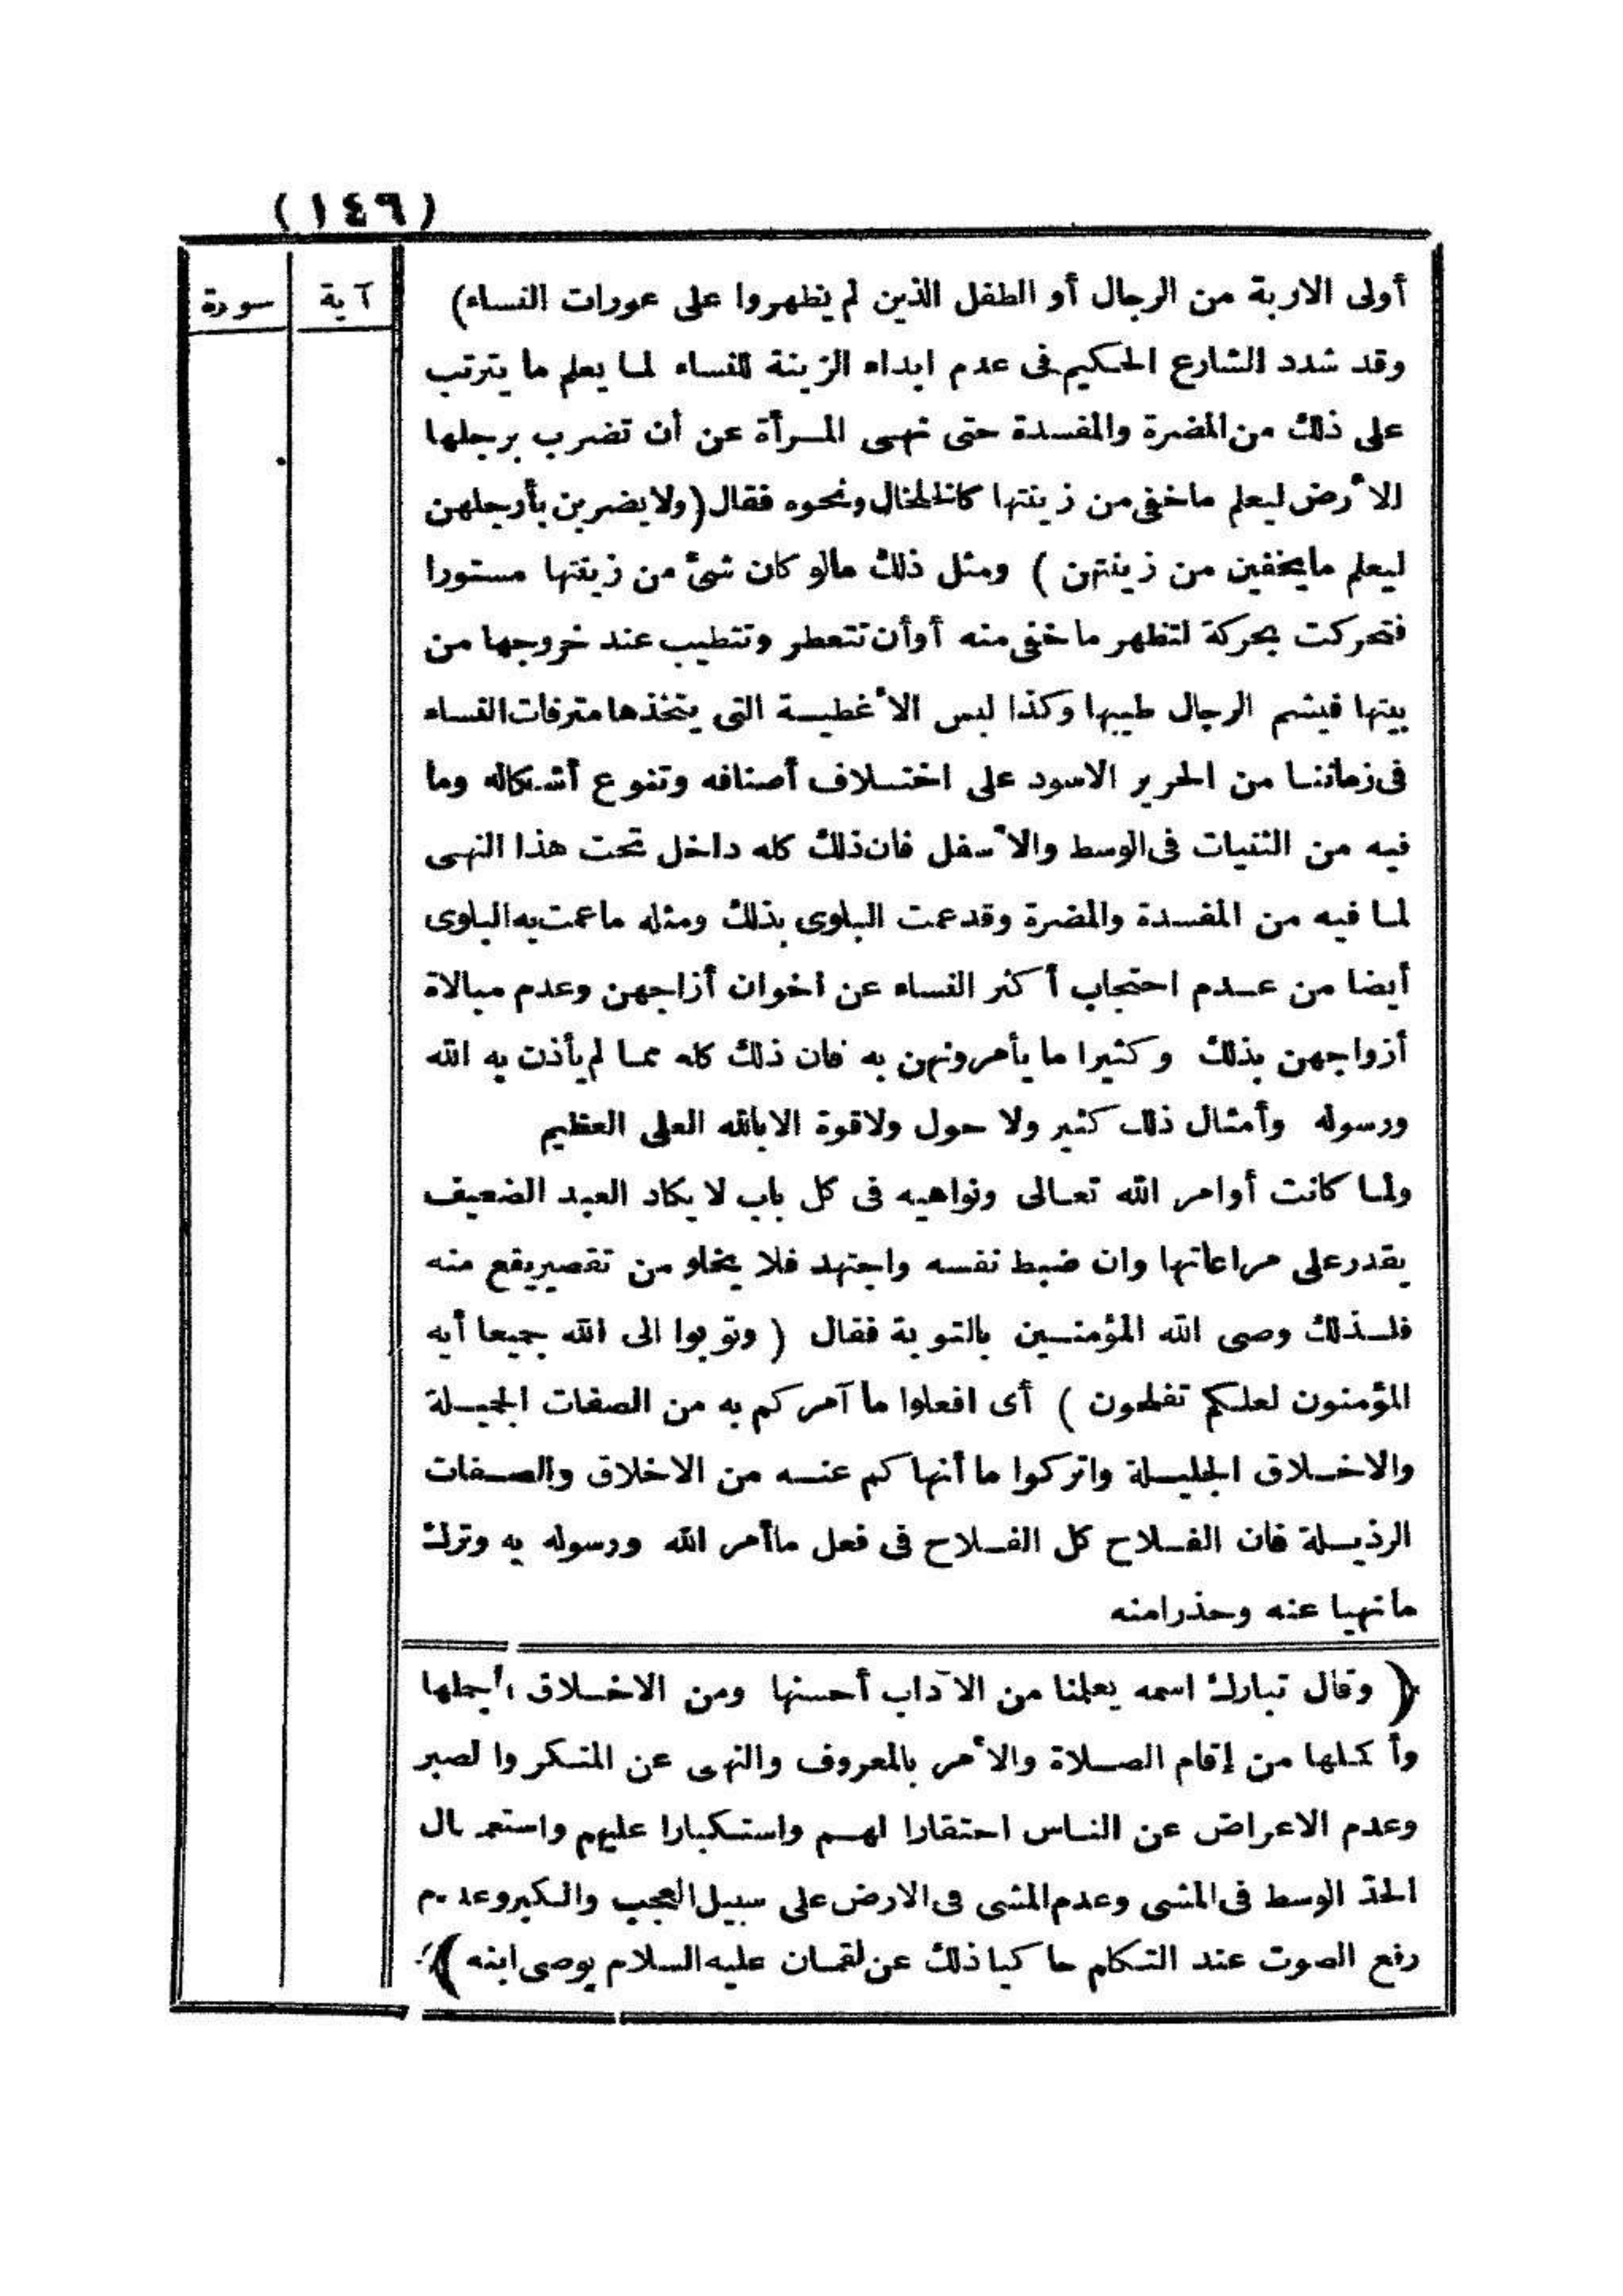 (١٤٩)
آية سورة
أولى الاربة من الرجال أو الطفل الذين لم يظهروا على عورات النساء)
وقد شدد الشارع الحكيم فى عدم ابداء الزينة للنساء لما يعلم ما يترتب
على ذلك من المضرة والمفسدة حتى نهى المرأة عن أن تضرب برجلها
الأرض ليعلم ماخفى من زينتها كالخلخال ونحوه فقال (ولا يضربن بأرجلهن
ليعلم مايخفين من زينتهن) ومثل ذلك مالو كان شئ من زينتها مستورا
فتحركت بحركة لتظهر ماخفى منه أو أن تتعطر وتتطيب عند خروجها من
بيتها فيشم الرجال طيبها وكذا لبس الأغطية التى يتخذها مترفات النساء
فى زماننا من الحرير الاسود على اختلاف أصنافه وتنوع أشكاله وما
فيه من الثنيات فى الوسط والأسفل فان ذلك كله داخل تحت هذا النهى
لما فيه من المفسدة والمضرة وقد عمت البلوى بذلك ومثله ماعمت به البلوى
أيضا من عدم احتجاب أكثر النساء عن اخوان أزاجهن وعدم مبالاة
أزواجهن بذلك وكثيرا ما يأمرونهن به فان ذلك كله مما لم يأذن به الله
ورسوله وأمثال ذلك كثير ولا حول ولاقوة الا بالله العلى العظيم
ولما كانت أوامر الله تعالى ونواهيه فى كل باب لا يكاد العبد الضعيف
يقدر على مراعاتها وان ضبط نفسه واجتهد فلا يخلو من تقصير يقع منه
فلذلك وصى الله المؤمنين بالتوبة فقال (وتوبوا الى الله جميعا أيه
المؤمنون لعلكم تفلحون) أى افعلوا ما آمركم به من الصفات الجميلة
والاخلاق الجليلة واتركوا ما أنهاكم عنه من الاخلاق والصفات
الرذيلة فان الفلاح كل الفلاح فى فعل ماأمر الله ورسوله به وترك
مانهيا عنه وحذرا منه
(وقال تبارك اسمه يعلمنا من الآداب أحسنها ومن الاخلاق أجملها
وأكملها من إقام الصلاة والأمر بالمعروف والنهى عن المنكر والصبر
وعدم الاعراض عن الناس احتقارا لهم واستكبارا عليهم واستعمال
الحد الوسط فى المشى وعدم المشى فى الارض على سبيل العجب والكبر وعدم
رفع الصوت عند التكلم حاكيا ذلك عن لقمان عليه السلام يوصى ابنه)